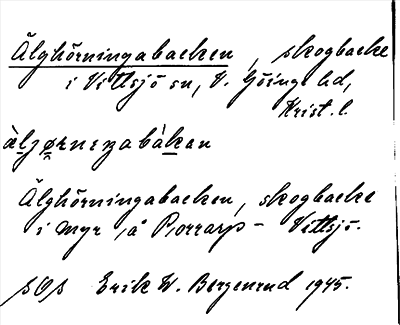 Älghörningabacken, skogbacke
i Vittsjö sn, V. Göinge hd,
Krist. l.
àljørneŋabàkan
Älghörningabacken, skogbacke
i myr å Porrarp - Vittsjö.
SOS Erik W. Bergenrud 1945.